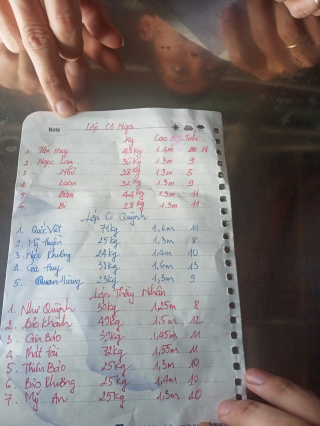 Note
Lớp Cô Nga
Kg Cao Tuổi
1. Tấn Huy 43kg 1.4m 11
2. Ngọc Lan 36kg 1.3m 9
3 Nhớ 28kg 1.3m 8
Loan 32kg 1.3m 9
Đan 44kg 1.3m 11
Bi 28kg 1.3m 11
Lớp Cô Quỳnh
1. Quốc Việt 71kg 1,6m 11
2. Mỹ 25kg 1,3m 8
3. Ngọc Phương 24kg 1,4m 10
4. Gia Huy 1,6m 13
5. Hoàng 23kg 1,3m 9
Lớp Thầy Nhân
1. Như Quỳnh 30kg 1,25m 8
2. Bảo Khánh 49kg 1,5m 12
3. Gia Bảo 39kg 1,45m 11
4. Phát Tài 72kg 1,55m 11
5. Thiên Bảo 25kg 1,3m 10
6. Bảo Phương 25kg 1,4m 10
7. Mỹ An 25kg 1,3m 20